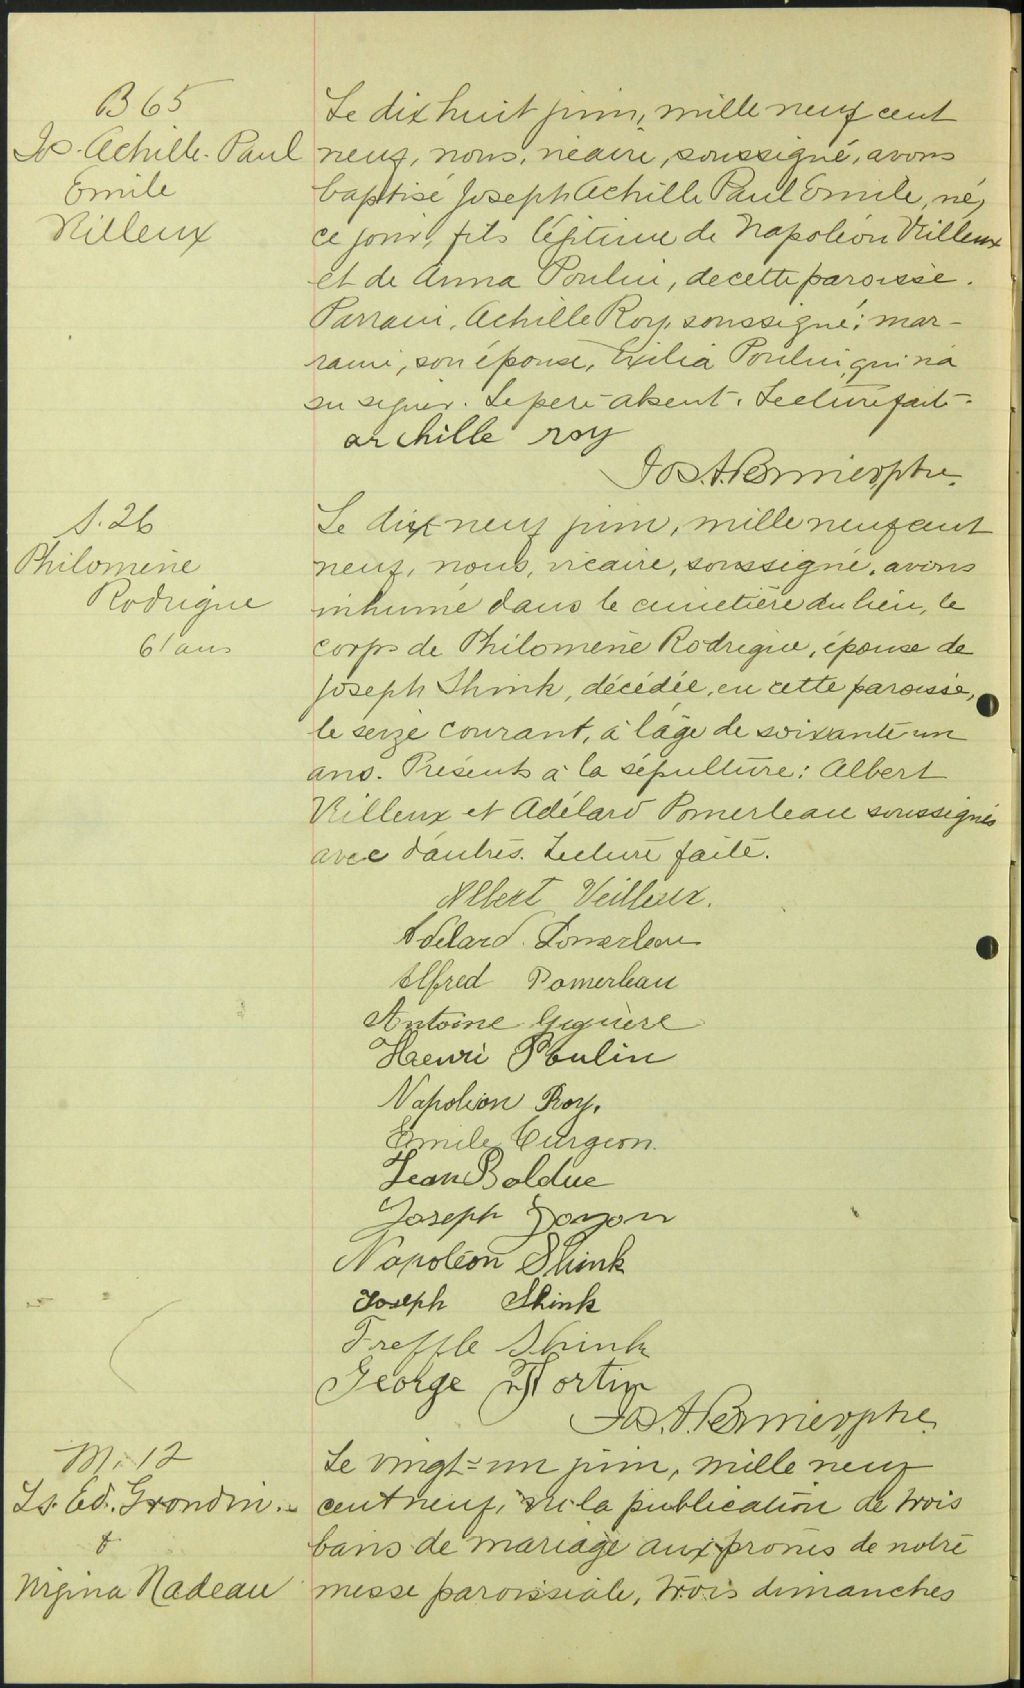 B 65
Jos. Achille. Paul
Emile
Villeux
Le dix huit juin, mille neuf cent
neuf, nous, vicaire, soussigné, avons
baptisé Joseph Achille Paul Emile, né,
ce jour, fils légitime de Napoléon Villeux
et de Anna Poulin, de cette paroisse.
Parrain, Achille Roy, soussigné; mar-
raine, son épouse, Exilia Poulin, qui n'a
su signer. Le père absent. Lecture faite.
archille roy
Jos. A. Bernier, ptre.
S. 26
Philomène
Rodrigue
61 ans
Le dix-neuf juin, mille neuf cent
neuf, nous, vicaire, soussigné, avons
inhumé dans le cimetière du lieu, le
corps de Philomène Rodrigue, épouse de
Joseph Shink, décédée, en cette paroisse,
le seize courant, à l'âge de soixante-un
ans. Présents à la sépulture: Albert
Villeux et Adélard Pomerleau soussignés
avec d'autres. Lecture faite.
Albert Veilleux.
Adélard. Pomerleau
Alfred Pomerleau
Antoine Giguère
Henri Poulin
Napoléon Roy.
Emile Turgeon.
Jean Bolduc
Joseph Doyon
Napoléon Shink
Joseph Shink
Treffle Shink
George Fortin
Jos. A. Bernier, ptre.
M. 12
Ls. Ed. Grondin.
&
Virgina Nadeau
Le vingt-un juin, mille neuf
cent neuf, vu la publication de trois
bans de mariage aux prônes de notre
messe paroissiale, trois dimanches